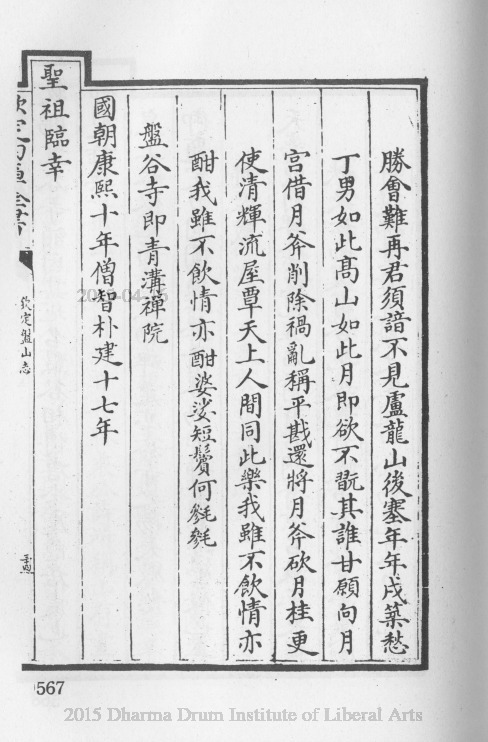 勝會難再君須諳不見盧龍山後塞年年戍築愁
丁男如此髙山如此月即欲不翫其誰甘願向月
宫借月斧削除禍亂稱平戡還將月斧砍月桂更
使清輝流屋覃天上人間同此樂我雖不飲情亦
酣我雖不飲情亦酣婆娑短鬢何毿毿
盤谷寺即青溝禪院
國朝康熙十年僧智朴建十七年
聖祖臨幸
欽定四庫全書
欽定盤山志
567
2015 Dharma Drum Institute of Liberal Arts